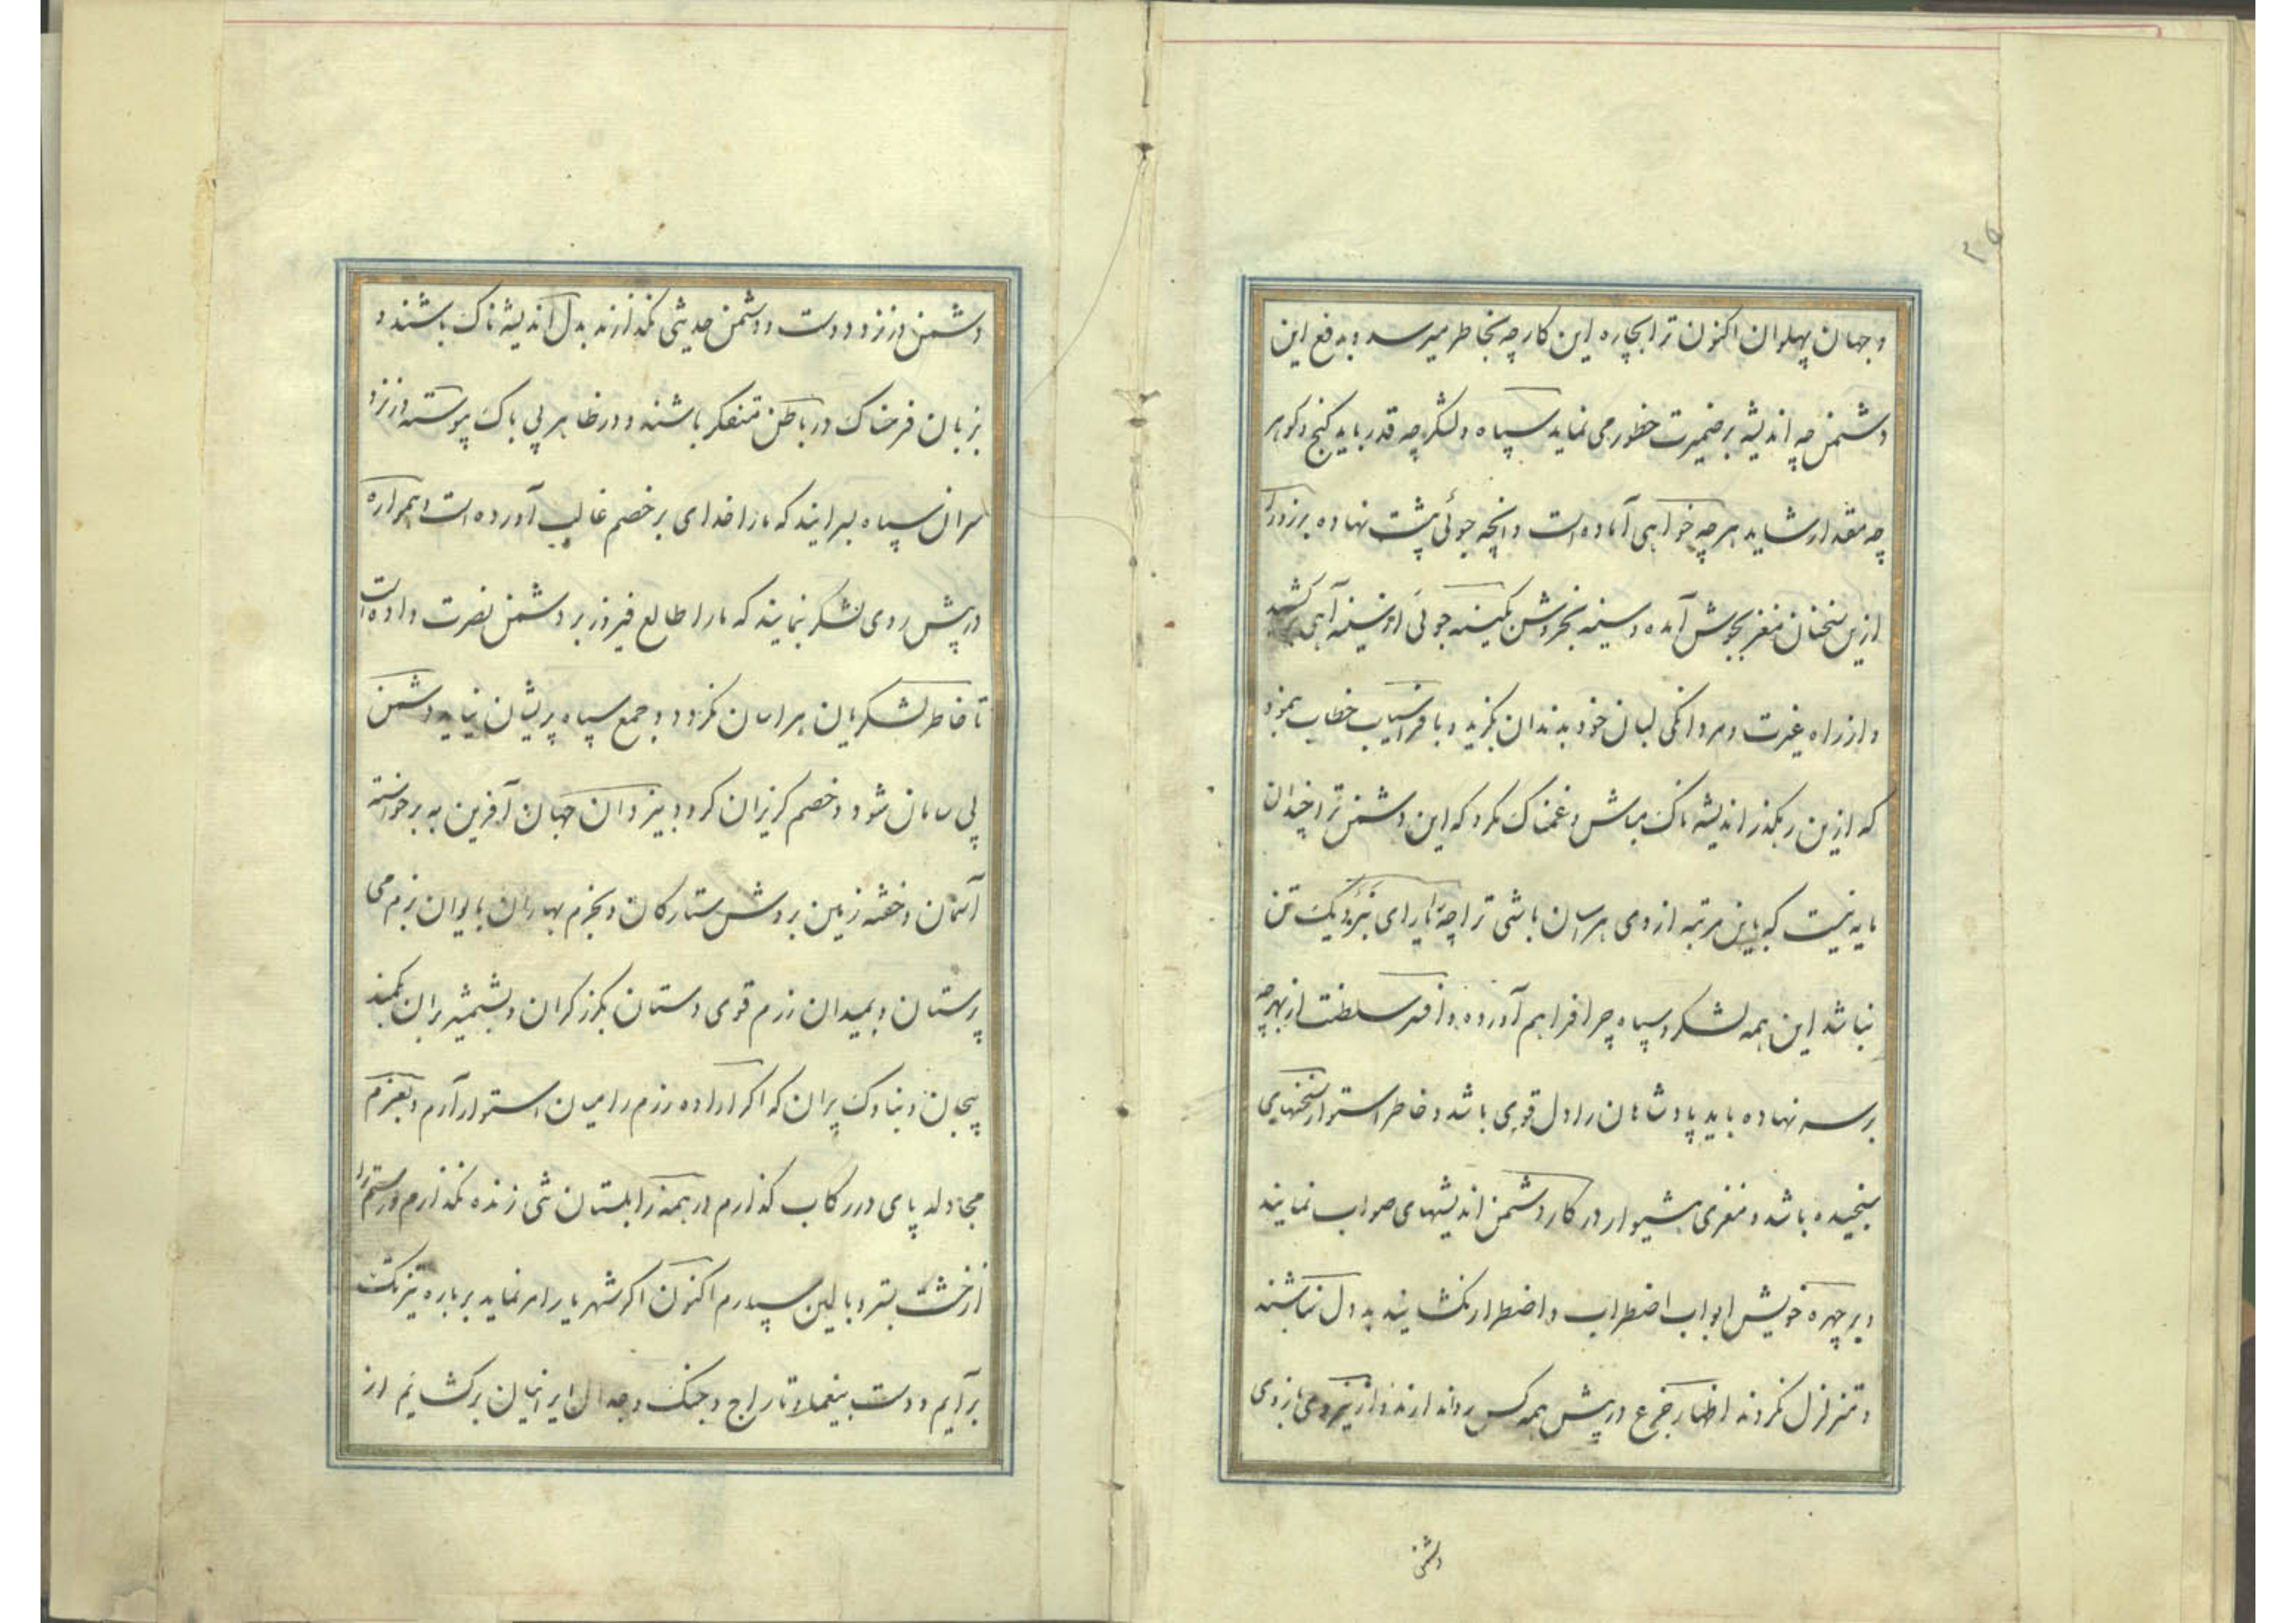 ۲۵
و جهان پهلوان اکنون ترا بچاره این کار چه بخاطر میرسد و بدفع این
دشمن چه اندیشه بر ضمیرت خطور می نماید سپاه و لشکر چه قدر باید گنج و کوهر
چه مقدار شاید هرچه خواهی آماده است و انچه جوئی پشت نهاده برزو را
ازین سخنان مغز بجوش آمده و سینه بخروش بکینه جوئی از سینه آهی برکشید
و از راه غیرت و مردانکی لبان خود بدندان بگزید و با فراسیاب خطاب نمود
که ازین رهکذر اندیشه ناک مباش و غمناک مکرد که این دشمن ترا چندان
مایه نیست که باین مرتبه از وی هراسان باشی ترا چه یارای نبرد یک تن
نباشد این همه لشکر و سپاه چرا فراهم آورده و افسر سلطنت از بهر چه
بر سر نهاده باید پادشاهان را دل قوی باشد و خاطر استوار سخنهای
سنجیده باشد و مغزی هشیوار در کار دشمن اندیشهای صواب نمایند
و بر چهره خویش ابواب اضطراب و اضطرار نکشایند بد دل نباشند
و متزلزل نکردند اظهار جزع در پیش همه کس روا ندارند و از نیروی بازوی
دشمن
دشمن در نزد دوست و دشمن حدیثی نکذارند بدل اندیشه ناک باشند و
بزبان فرحناک در باطن متفکر باشند و در ظاهر بی باک پیوسته در نزد
سران سپاه سرایند که ما را خدای بر خصم غالب آورده است و همواره
در پیش روی لشکر نمایند که ما را طالع فیروز بر دشمن نصرت داده است
تا خاطر لشکریان هراسان نکردد و جمع سپاه پریشان نیاید دشمن
بی سامان شود و خصم کریزان کردد بیزدان جهان آفرین به برخواسته
آسمان و خفته زمین بروشن ستارکان و بخرم بهاران بایوان بزم می
پرستان و بمیدان رزم قوی دستان بکرز کران و بشمشیر بران بکمند
پیچان و بناوک پران که اکر اراده رزم را میان استوار آرم و بعزم
مجادله پای در رکاب کذارم در همه زابلستان شی زنده نکذارم و رستم را
از خشت بستر و بالین سپارم اکنون اکر شهریار امر نماید بر باره تیزتک
برآیم و دست بیغما و تاراج و جنک و جدال ایرانیان برکشایم از